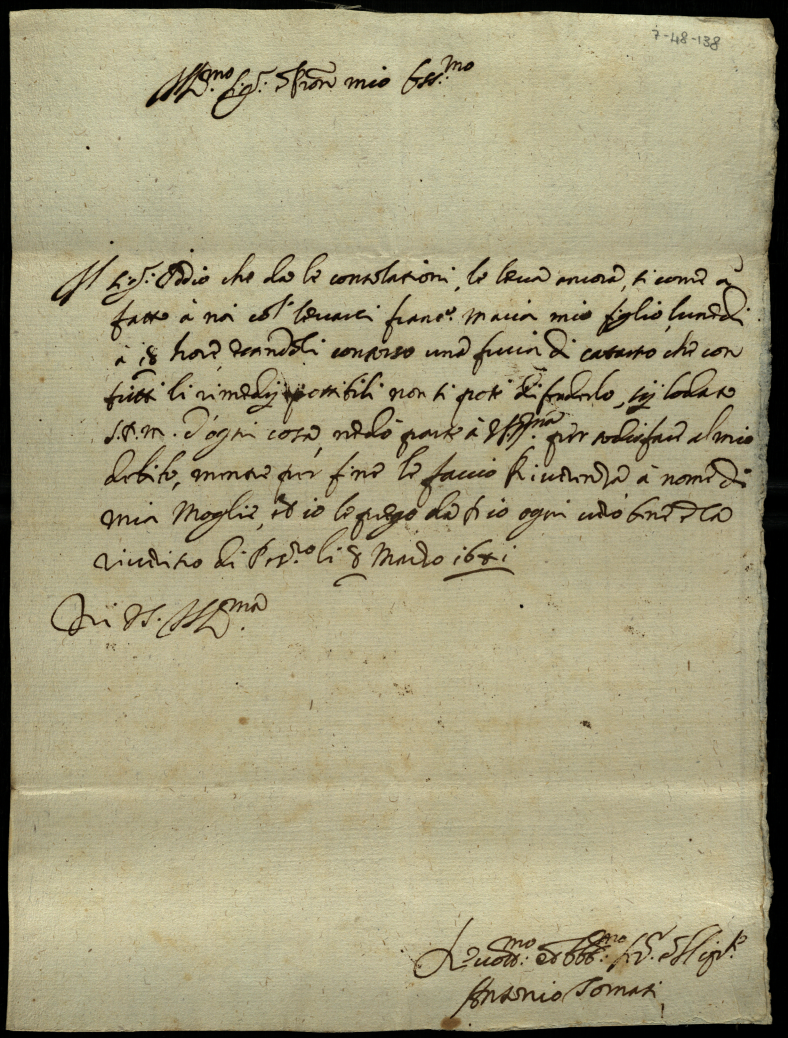 7-48-138
Ill.mo Sig.r Pron mio Oss.mo
Il Sig.r Iddio che da le consolationi, le leva ancora, si come à
fatto à noi col levarci Franc.o Maria mio figlio lunedi
à 18 hore, essendoli concorso una furia di cataro, che con
tutti li rimedij possibili non si potè difenderlo, sij lodato
S.D.M. d'ogni cosa, ne dò parte à V.S. Ill.ma per sodisfare al mio
debito, mentre per fine le faccio Riverenza à nome di
mia Moglie, et io le prego da Dio ogni vero bene e la
riverisco di li 8 Marzo 1681
Di V.S. Ill.ma
Devot.mo et Obb.mo Ser.
Antonio Tomasi